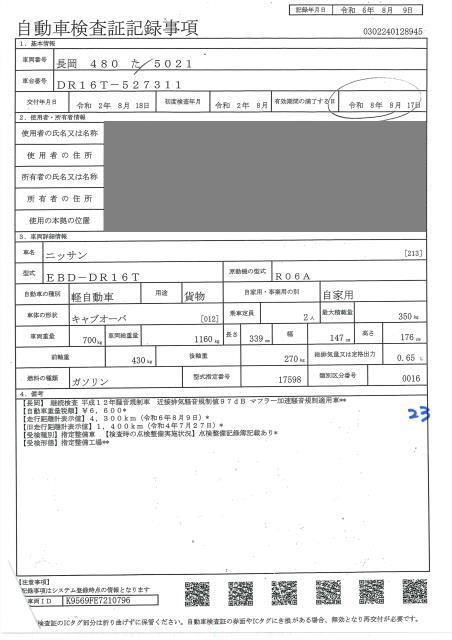 記録年月日 令和 6年 8月 9日
自動車検査証記録事項
0302240128945
1．基本情報
車両番号 長岡 480 た 5021
車台番号 DR16T-527311
交付年月日 令和 2年 8月 18日 初度検査年月 令和 2年 8月 有効期間の満了する日 令和 8年 8月 17日
2．使用者・所有者情報
使用者の氏名又は名称
使用者の住所
所有者の氏名又は名称
所有者の住所
使用の本拠の位置
3．車両詳細情報
車名 ニッサン [213]
型式 EBD-DR16T 原動機の型式 R06A
自動車の種別 軽自動車 用途 貨物 自家用・事業用の別 自家用
車体の形状 キャブオーバ [012] 乗車定員 2人 最大積載量 350kg
車両重量 700kg 車両総重量 1160kg 長さ 339cm 幅 147cm 高さ 176cm
前軸重 430kg 後軸重 270kg 総排気量又は定格出力 0.65L
燃料の種類 ガソリン 型式指定番号 17598 類別区分番号 0016
4．備考
【長岡】 継続検査 平成12年騒音規制車 近接排気騒音規制値97dB マフラー加速騒音規制適用車**
【自動車重量税額】¥6,600*
【走行距離計表示値】4,300km（令和6年8月9日）*
【旧走行距離計表示値】1,400km（令和4年7月27日）*
【受検種別】指定整備車 【検査時の点検整備実施状況】点検整備記録簿記載あり*
【受検形態】指定整備工場**
23
【注意事項】
記録事項はシステム登録時点の情報となります
車両ID K9569FE7210796
検査証のICタグ部分は折り曲げずに保管ください。自動車検査証の券面やICタグにき損がある場合、無効となり再交付が必要です。